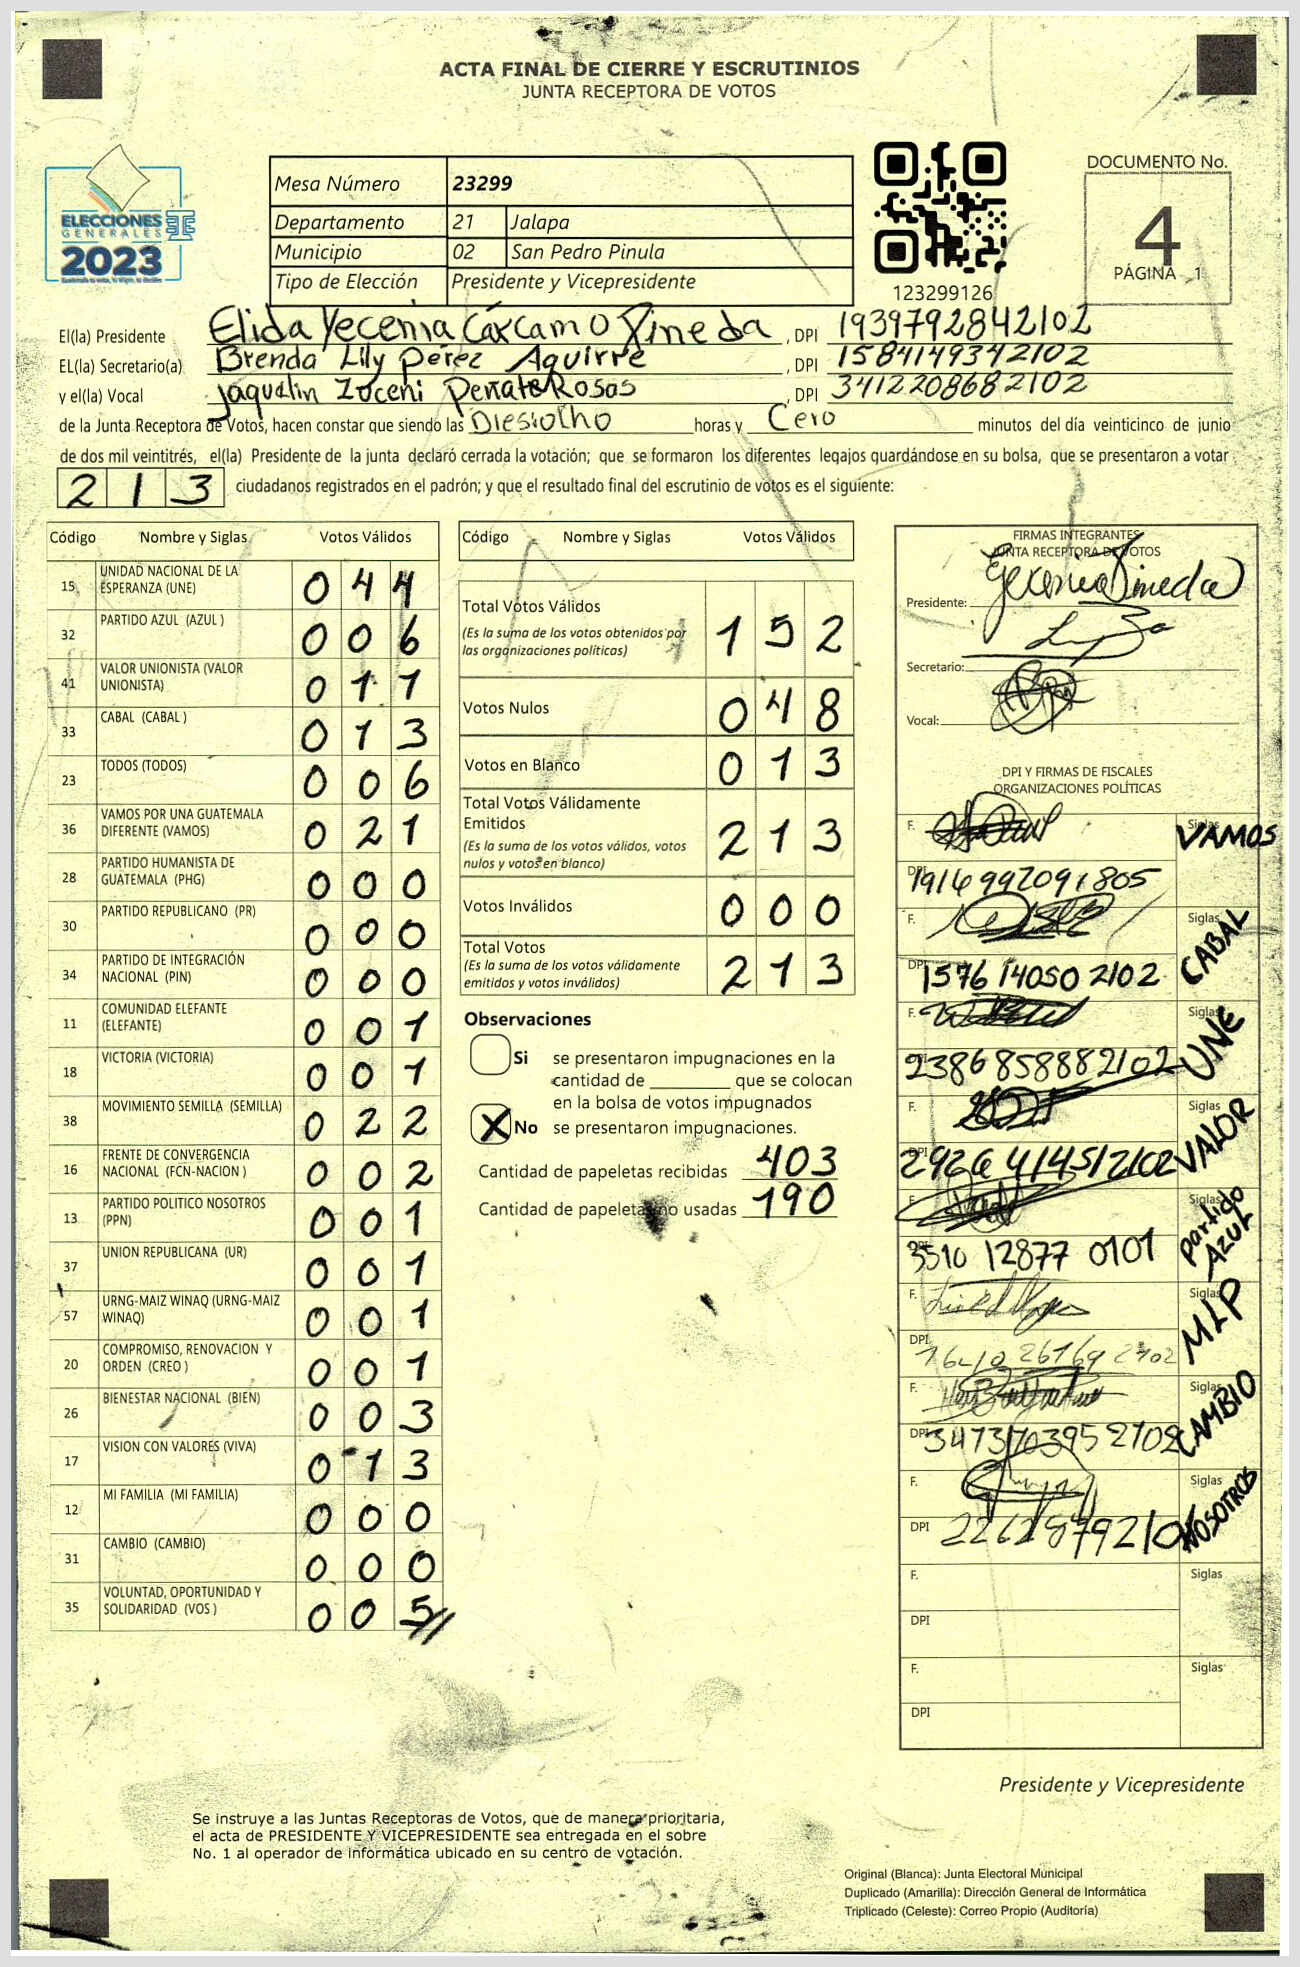 ACTA FINAL DE CIERRE Y ESCRUTINIOS
JUNTA RECEPTORA DE VOTOS
ELECCIONES
GENERALES
2023
Mesa Número 23299
Departamento 21 Jalapa
Municipio 02 San Pedro Pinula
Tipo de Elección Presidente y Vicepresidente
123299126
DOCUMENTO No.
4
PÁGINA 1
El(la) Presidente Elida Yecenia Cárcamo Pineda, DPI 1939792842102
EL(la) Secretario(a) Brenda Lily Pérez Aguirre, DPI 1584149342102
y el(la) Vocal Jaquelin Zoceni Peñate Rosas, DPI 3412208682102
de la Junta Receptora de Votos, hacen constar que siendo las Diesiolho horas y Cero minutos del día veinticinco de junio
de dos mil veintitrés, el(la) Presidente de la junta declaró cerrada la votación; que se formaron los diferentes legajos guardándose en su bolsa, que se presentaron a votar
213 ciudadanos registrados en el padrón; y que el resultado final del escrutinio de votos es el siguiente:
Código Nombre y Siglas Votos Válidos
15 UNIDAD NACIONAL DE LA ESPERANZA (UNE) 044
32 PARTIDO AZUL (AZUL ) 006
41 VALOR UNIONISTA (VALOR UNIONISTA) 011
33 CABAL (CABAL ) 013
23 TODOS (TODOS) 006
36 VAMOS POR UNA GUATEMALA DIFERENTE (VAMOS) 021
28 PARTIDO HUMANISTA DE GUATEMALA (PHG) 000
30 PARTIDO REPUBLICANO (PR) 000
34 PARTIDO DE INTEGRACIÓN NACIONAL (PIN) 000
11 COMUNIDAD ELEFANTE (ELEFANTE) 001
18 VICTORIA (VICTORIA) 001
38 MOVIMIENTO SEMILLA (SEMILLA) 022
16 FRENTE DE CONVERGENCIA NACIONAL (FCN-NACION ) 002
13 PARTIDO POLITICO NOSOTROS (PPN) 001
37 UNION REPUBLICANA (UR) 001
57 URNG-MAIZ WINAQ (URNG-MAIZ WINAQ) 001
20 COMPROMISO, RENOVACION Y ORDEN (CREO ) 001
26 BIENESTAR NACIONAL (BIEN) 003
17 VISION CON VALORES (VIVA) 013
12 MI FAMILIA (MI FAMILIA) 000
31 CAMBIO (CAMBIO) 000
35 VOLUNTAD, OPORTUNIDAD Y SOLIDARIDAD (VOS ) 005
Código Nombre y Siglas Votos Válidos
Total Votos Válidos 152
(Es la suma de los votos obtenidos por
las organizaciones políticas)
Votos Nulos 048
Votos en Blanco 013
Total Votos Válidamente
Emitidos 213
(Es la suma de los votos válidos, votos
nulos y votos en blanco)
Votos Inválidos 000
Total Votos 213
(Es la suma de los votos válidamente
emitidos y votos inválidos)
Observaciones
Si se presentaron impugnaciones en la
cantidad de ________ que se colocan
en la bolsa de votos impugnados
X No se presentaron impugnaciones.
Cantidad de papeletas recibidas 403
Cantidad de papeletas no usadas 190
FIRMAS INTEGRANTES
JUNTA RECEPTORA DE VOTOS
Presidente: Yecenia Pineda
Secretario:
Vocal:
DPI Y FIRMAS DE FISCALES
ORGANIZACIONES POLÍTICAS
F. Siglas VAMOS
DPI 1916992091805
F. Siglas CABAL
DPI 1576 14050 2102
F. Siglas UNE
2386858882102
F. Siglas VALOR
DPI 2926414512102
F. Siglas Partido Azul
3510 12877 0101
F. Siglas MLP
DPI
F. Siglas CAMBIO
DPI 3473703952102
F. Siglas NOSOTROS
DPI
F. Siglas
DPI
F. Siglas
DPI
Presidente y Vicepresidente
Se instruye a las Juntas Receptoras de Votos, que de manera prioritaria,
el acta de PRESIDENTE Y VICEPRESIDENTE sea entregada en el sobre
No. 1 al operador de informática ubicado en su centro de votación.
Original (Blanca): Junta Electoral Municipal
Duplicado (Amarilla): Dirección General de Informática
Triplicado (Celeste): Correo Propio (Auditoría)